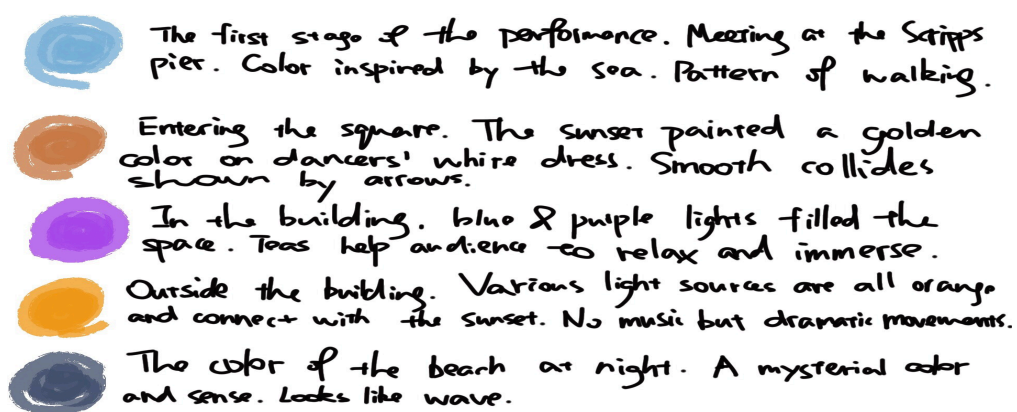 The first stage of the performance. Meeting at the Scripps
pier. Color inspired by the sea. Pattern of walking.
Entering the square. The sunset painted a golden
color on dancers' white dress. Smooth collides
shown by arrows.
In the building. blue & purple lights filled the
space. Teas help audience to relax and immerse.
Outside the building. Various light sources are all orange
and connect with the sunset. No music but dramatic movements.
The color of the beach at night. A mysterial color
and sense. Looks like wave.